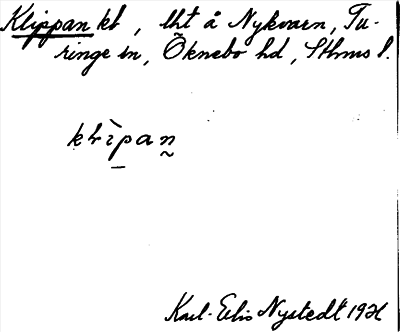 Klippan kt, lht å Nykvarn, Tu-
ringe sn, Öknebo hd, Sthms l.
klìpan
Karl-Elis Nystedt 19